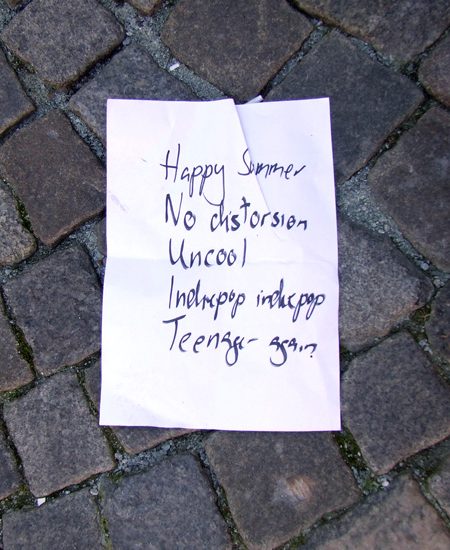 Happy Summer
No distorsion
Uncool
Indiepop indiepop
Teenager again